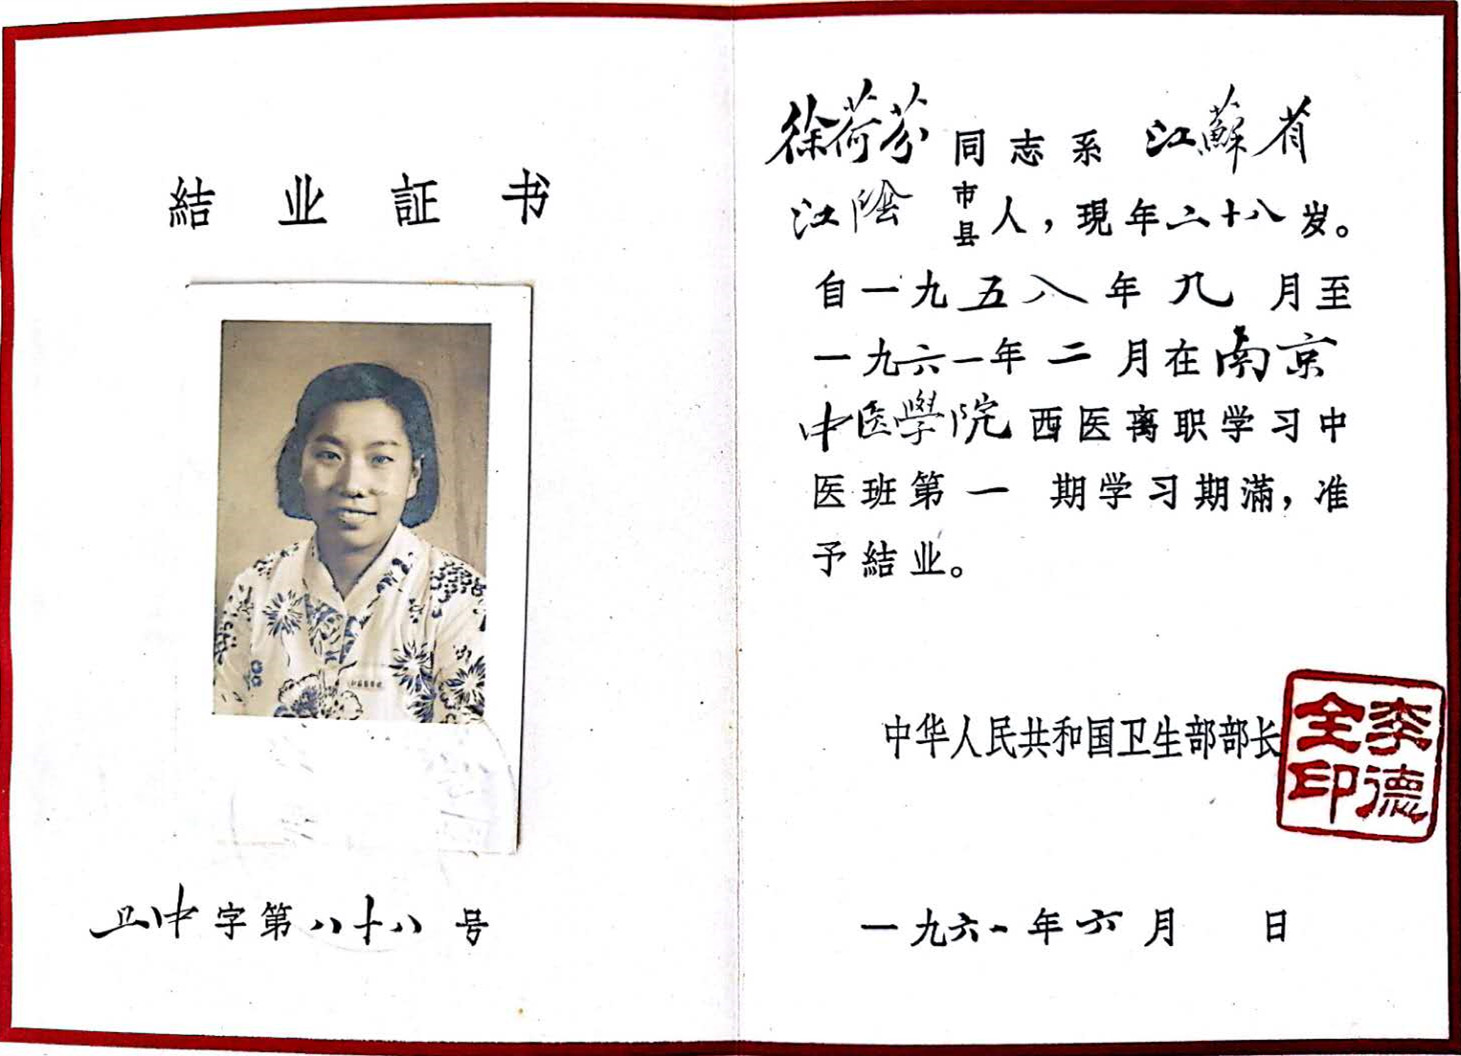 結业証书
卫中字第八十八号
徐荷芬同志系江蘇省
江陰市县人，現年二十八岁。
自一九五八年九月至
一九六一年二月在南京
中医學院西医离职学习中
医班第一期学习期滿，准
予結业。
中华人民共和国卫生部部长
李德全印
一九六一年六月 日